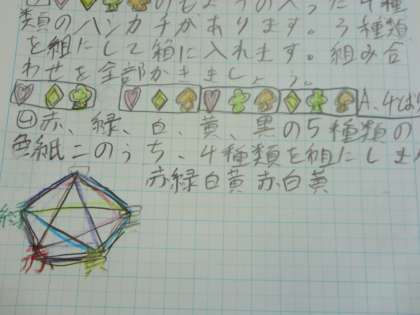 のもようの入った4種
類のハンカチがあります。3種類
を組にして箱に入れます。組み合
わせを全部かきましょう。
A、4とおり
④赤、緑、白、黄、黒の5種類の
色紙このうち、4種類を組にしま
赤緑白黄 赤白黄
緑